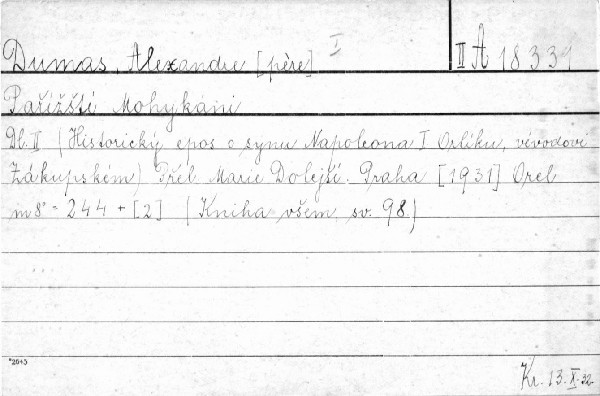 Dumas, Alexandre [père] I II A 18339
Pařížští Mohykáni
Dl. II (Historický epos o synu Napoleona I Orlíku, vévodovi
Zákupském) Přel. Marie Dolejší. Praha [1931] Orel
m8° - 244 + [2] (Kniha všem, sv. 98.)
*2645
Kr. 13. X. 32.